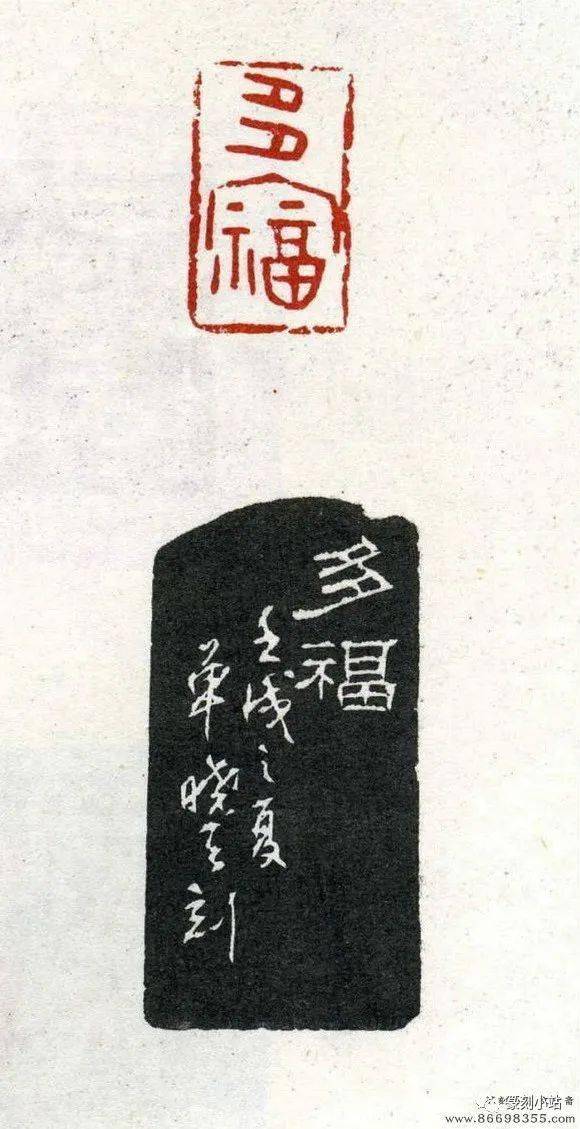 多福
多福
壬戌之夏
单晓天刻
篆刻小站
www.86698355.com